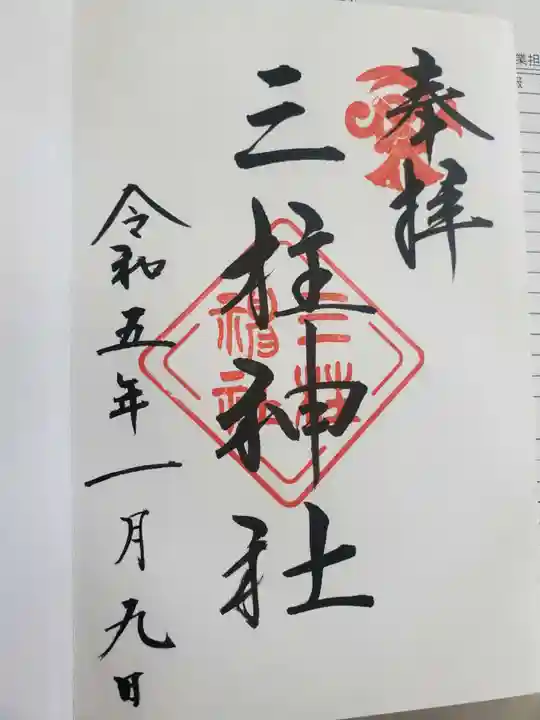 奉拝
三柱神社
三柱
神社
令和五年一月九日
業担